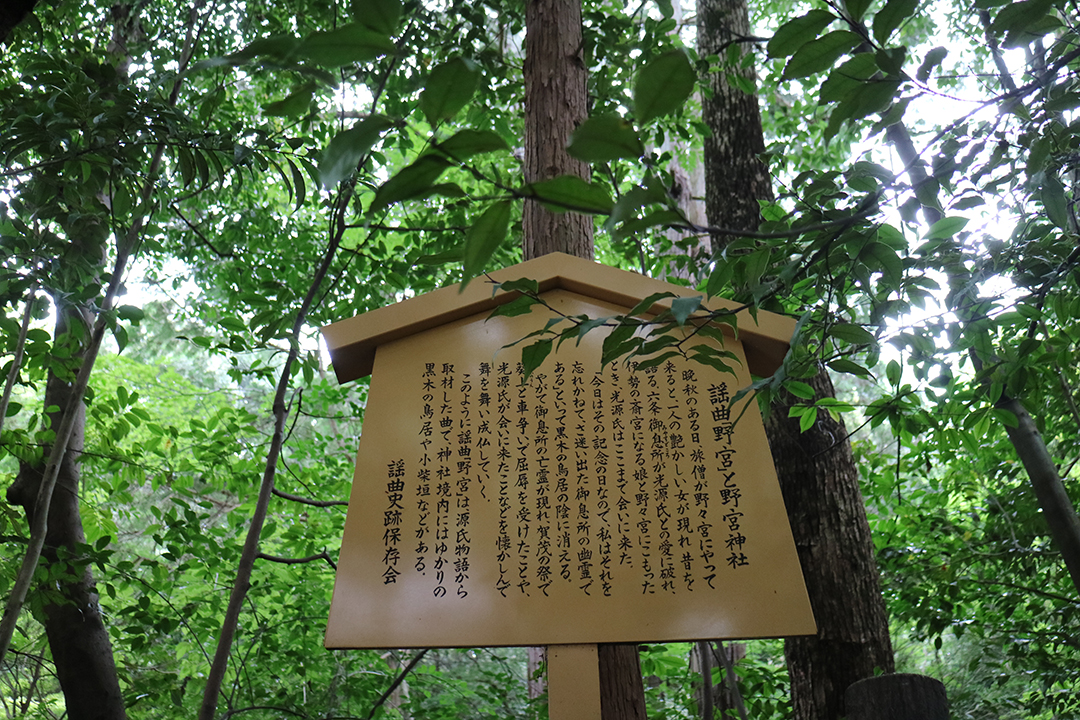 謡曲『野宮』と野宮神社
晩秋のある日、旅僧が野々宮にやって
来ると、一人の艶かしい女が現れ、昔を
語る。六条御息所が光源氏との愛に破れ、
伊勢の斎宮になる娘と野々宮にこもった
とき、光源氏はここまで会いに来た。
「今日はその記念の日なので、私はそれを
忘れかねてさ迷い出た御息所の幽霊で
ある」といって黒木の鳥居の陰に消える。
やがて御息所の亡霊が現れ、賀茂の祭で
葵上と車争いで屈辱を受けたことや、
光源氏が会いに来たことなどを懐かしんで
舞を舞い成仏していく。
このように謡曲『野宮』は源氏物語から
取材した曲で、神社境内にはゆかりの
黒木の鳥居や小柴垣などがある。
謡曲史跡保存会